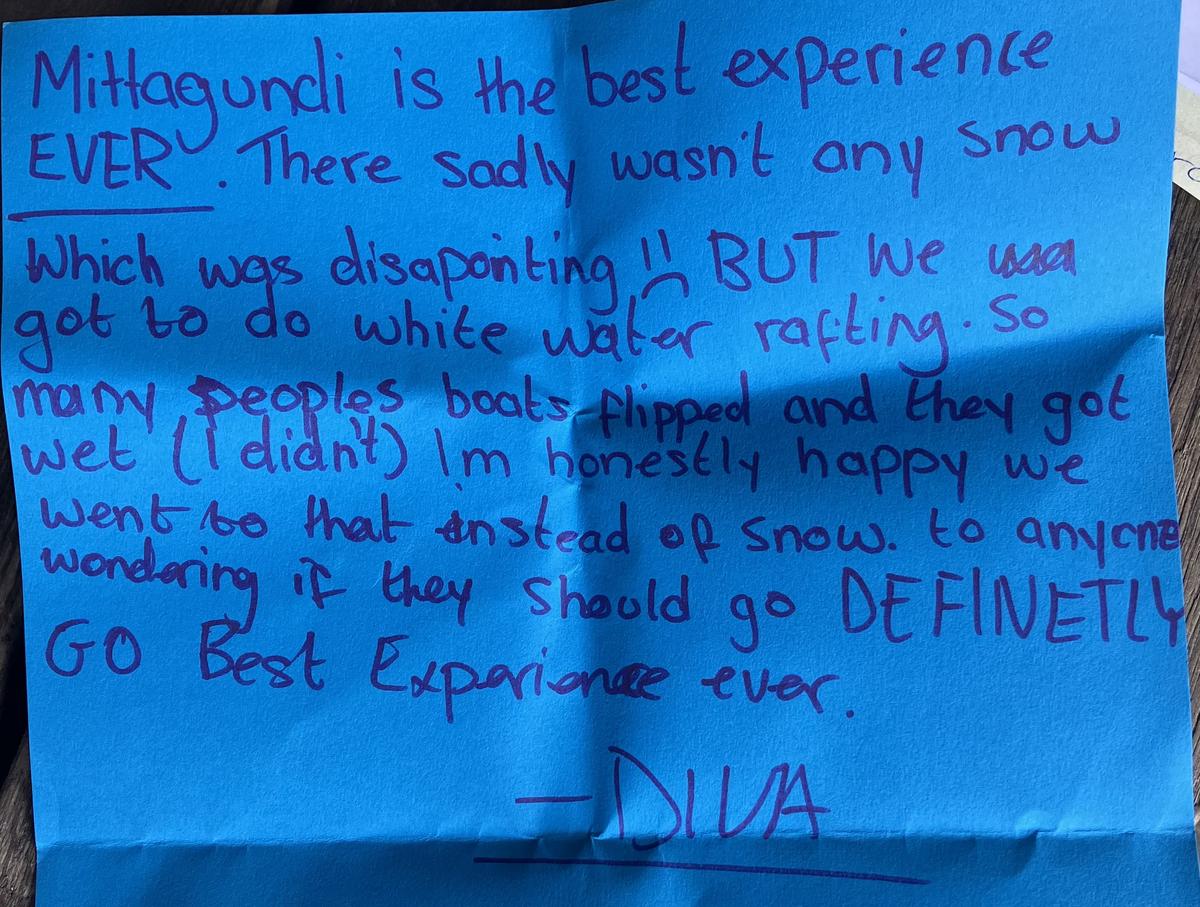 Mittagundi is the best experience
EVER. There sadly wasn't any snow
Which was disapointing !! BUT We
got to do white water rafting. So
many peoples boats flipped and they got
wet (I didn't) I'm honestly happy we
went to that instead of snow. to anyone
wondering if they should go DEFINETLY
GO Best Experience ever.
— DIVA